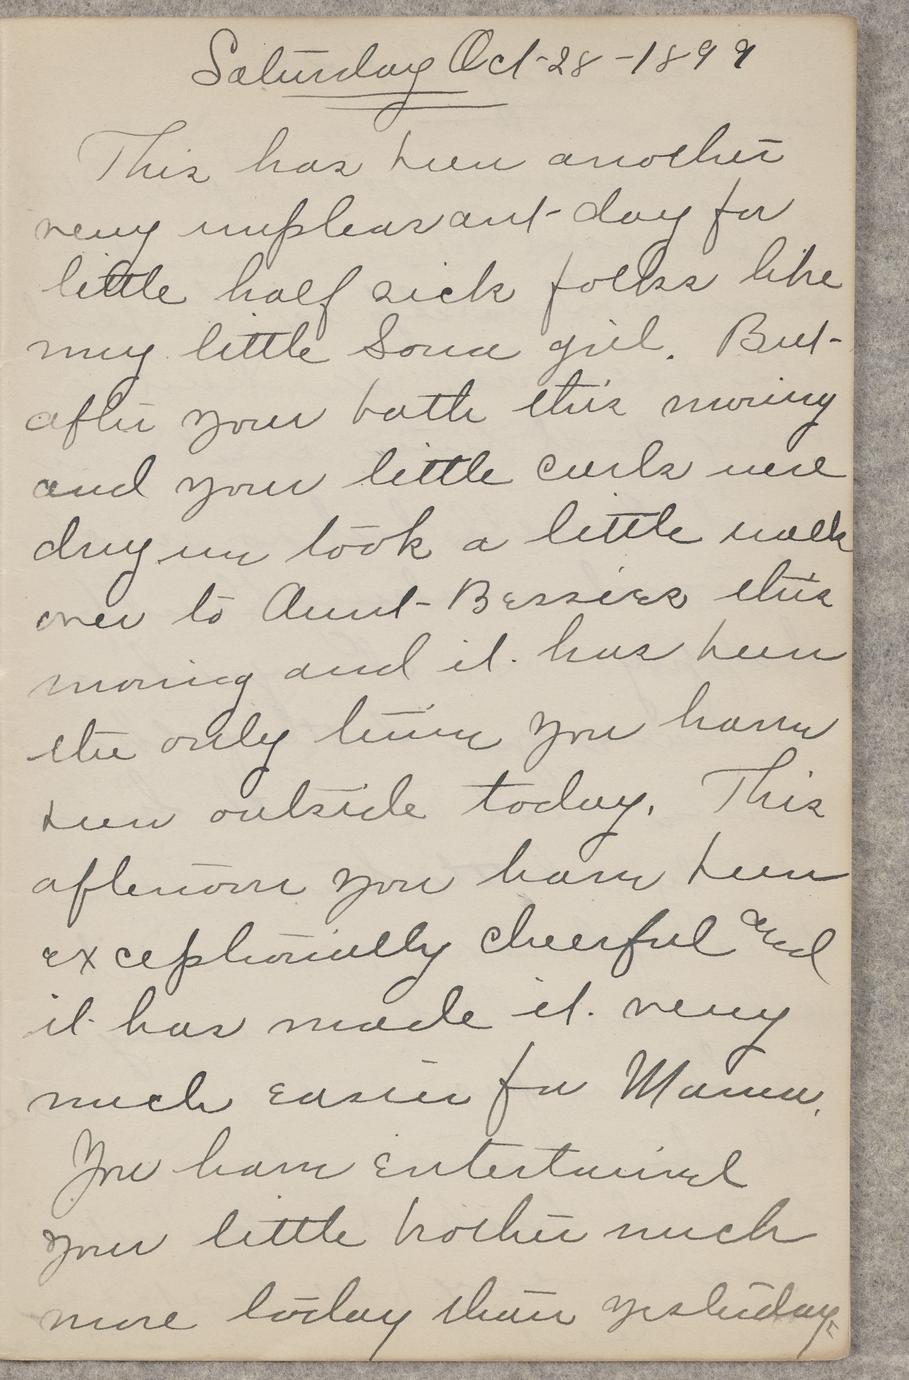 Saturday Oct-28-1899
This has been another
very unpleasant day for
little half sick folks like
my little Sona girl. But
after your bath this moring
and your little curls were
dry we took a little walk
over to Aunt Bessies this
moring and it has been
the only time you have
been outside today. This
afternoon you have been
exceptionally cheerful and
it has made it very
much easier for Mama.
You have entertained
your little brother much
more today than yesterday.